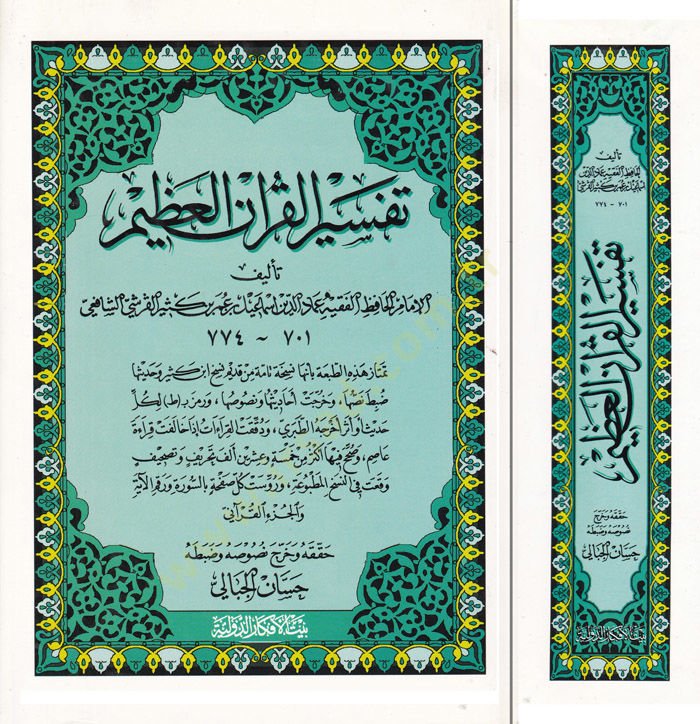 تفسير القرآن العظيم
تأليف
الإمام الحافظ الفقيه عماد الدين اسماعيل بن عمر بن كثير القرشي الشافعي
٧٠١ - ٧٧٤
تمتاز هذه الطبعة بأنها نسخة تامة من قديم نسخ ابن كثير وحديثها
ضبط نصها، وخرجت أحاديثها ونصوصها، ورمز بـ(ط) لكل
حديث أو أثر أخرجه الطبري، ودققت القراءات إذا خالفت قراءة
عاصم، وصحح فيها أكثر من خمسة وعشرين ألف تحريف وتصحيف
وقعت في النسخ المطبوعة، وروست كل صفحة بالسورة ورقم الآية
والجزء القرآني
حققه وخرج نصوصه وضبطه
حسان الجبالي
بيت الأفكار الدولية
تأليف
الحافظ الفقيه عماد الدين
اسماعيل بن عمر بن كثير القرشي
٧٠١ - ٧٧٤
تفسير القرآن العظيم
حققه وخرج
نصوصه وضبطه
حسان الجبالي
بيت الأفكار الدولية